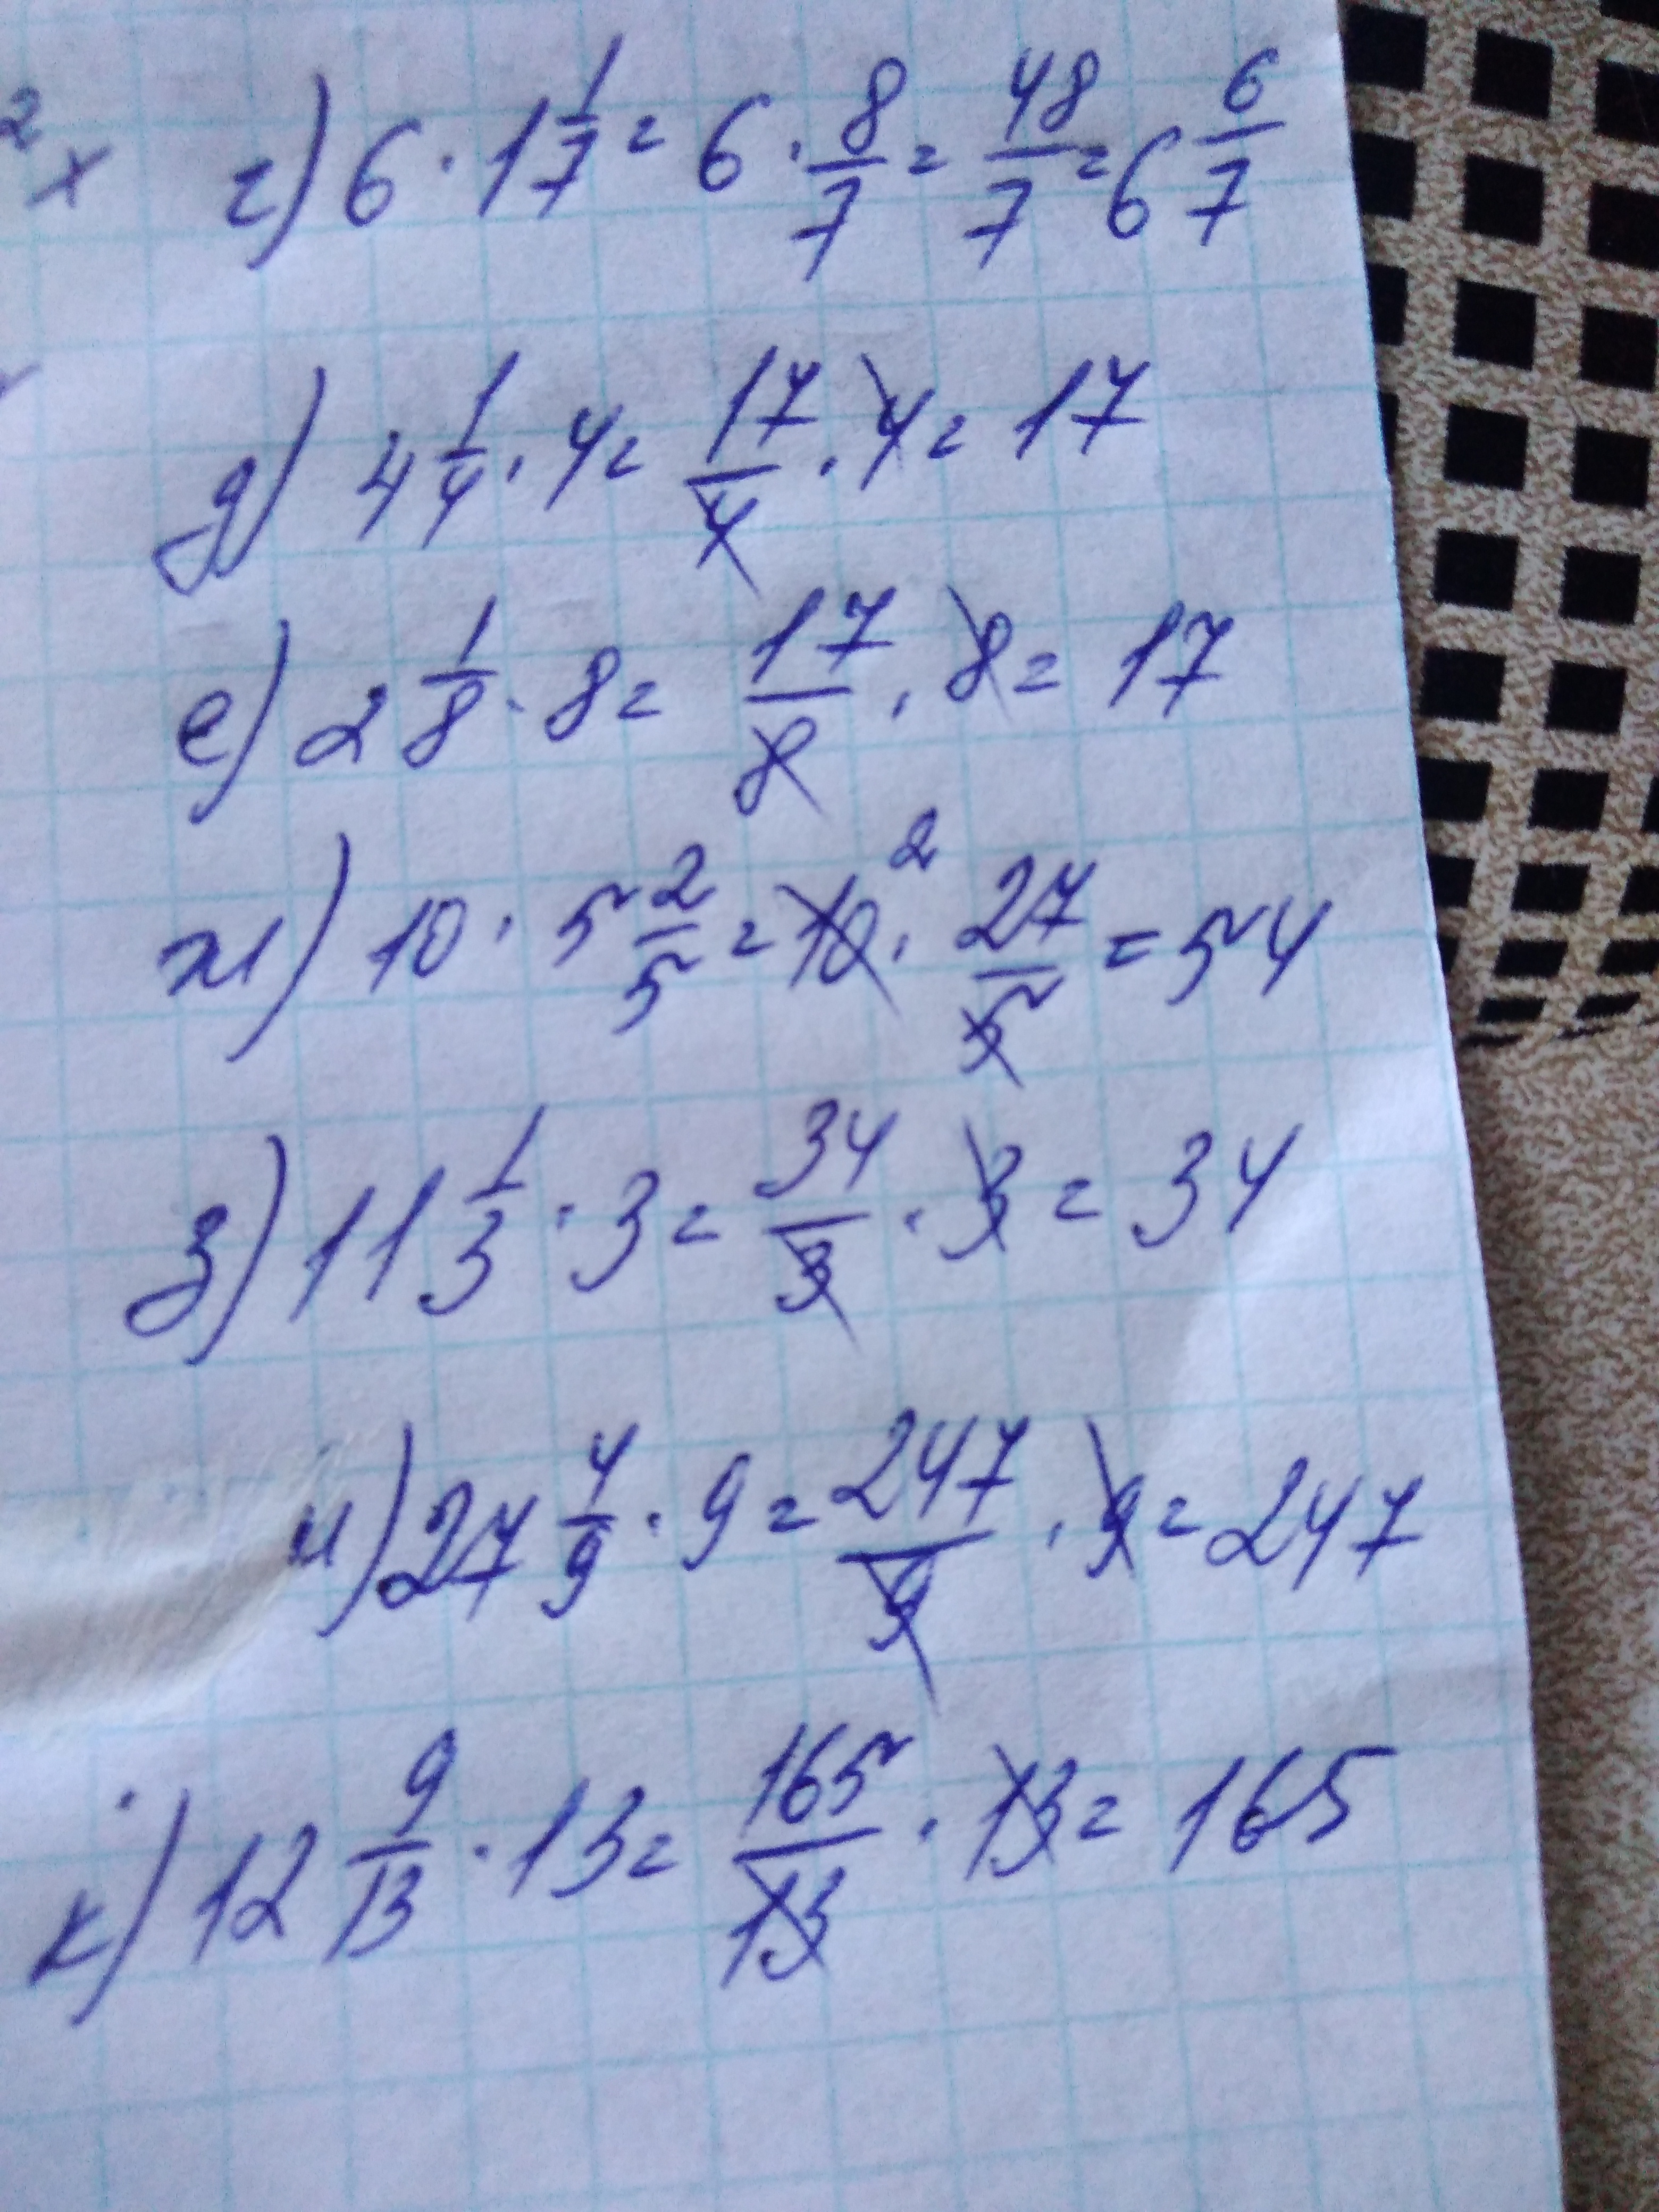 2 x
г) 6 · 1 1/7 = 6 · 8/7 = 48/7 = 6 6/7
д) 4 1/4 · 4 = 17/4 · 4 = 17
е) 2 1/8 · 8 = 17/8 · 8 = 17
ж) 10 · 5 2/5 = 10 2 · 27/5 = 54
з) 11 1/3 · 3 = 34/3 · 3 = 34
и) 27 4/9 · 9 = 247/9 · 9 = 247
к) 12 9/13 · 13 = 165/13 · 13 = 165